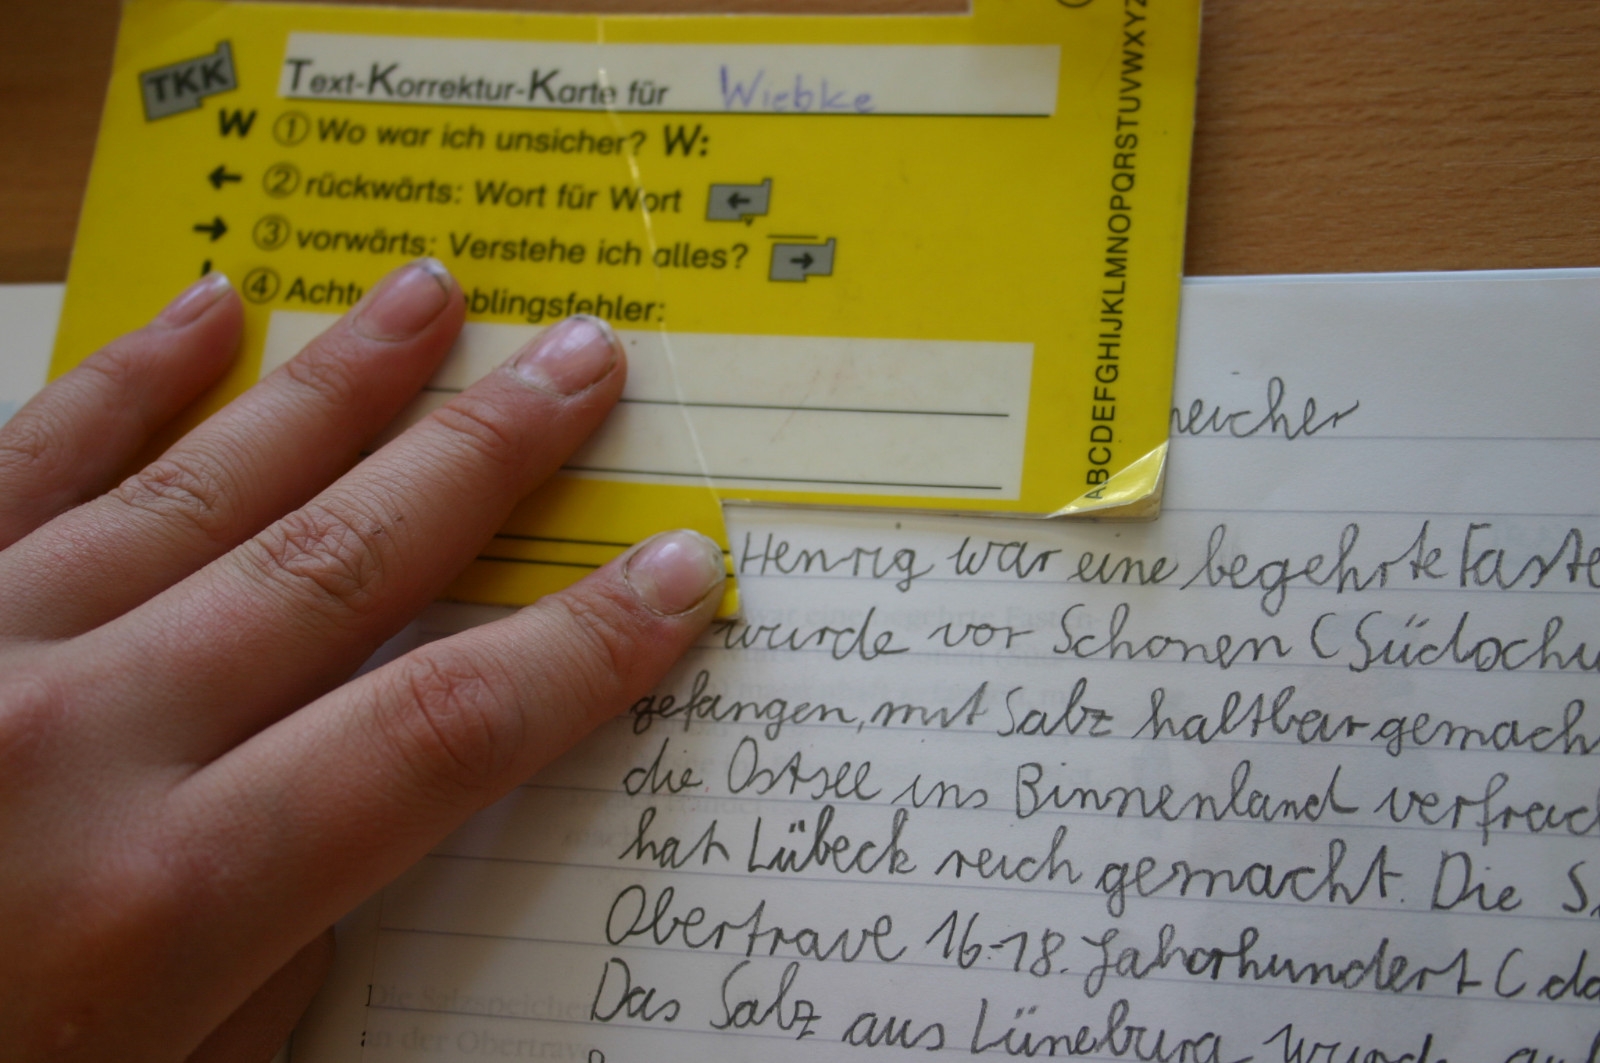 TKK
Text-Korrektur-Karte für Wiebke
W ① Wo war ich unsicher? W:
← ② rückwärts: Wort für Wort ←
→ ③ vorwärts: Verstehe ich alles? →
④ Achtu eblingsfehler:
ABCDEFGHIJKLMNOPQRSTUVWXYZ
peicher
Henrig war eine begehrte Faste
wurde vor Schonen (Südschw
gefangen, mit Salz haltbar gemach
die Ostsee ins Binnenland verfrac
hat Lübeck reich gemacht. Die S
Obertrave 16.-18. Jahrhundert (da
Das Salz aus Lüneburg wurde
Die Salzspeicher
an der Obertrave